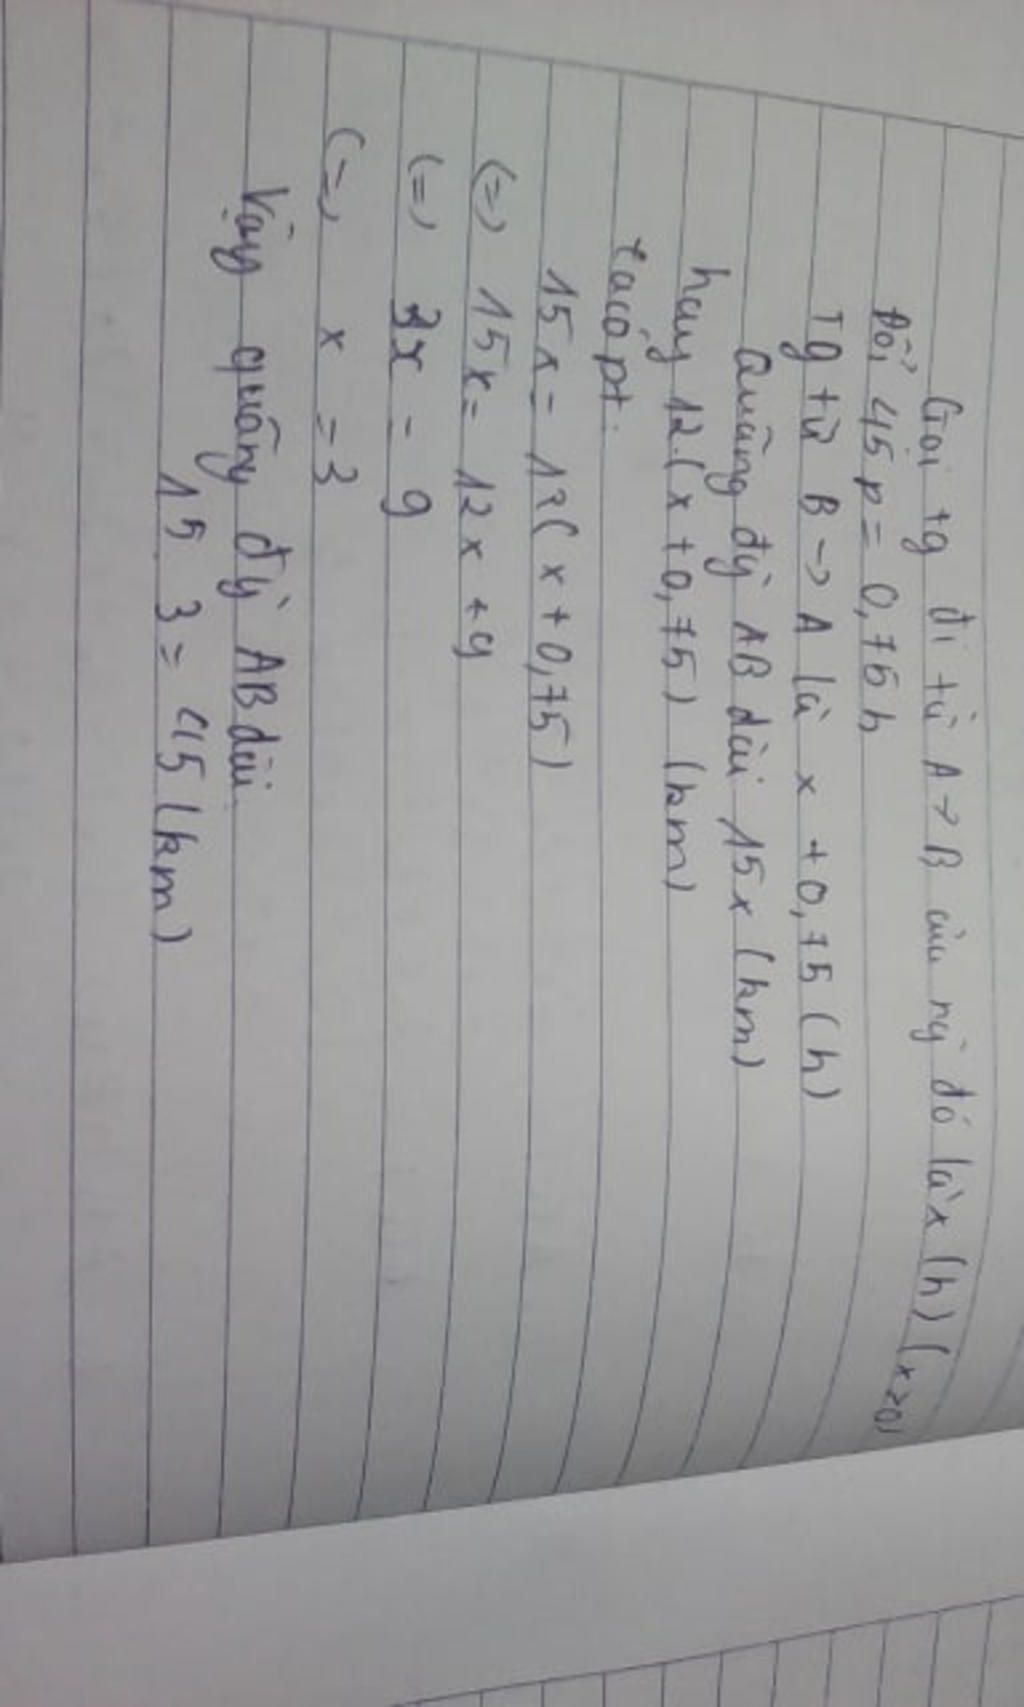 Gọi tg đi từ A → B của ng` đó là x (h) (x>0)
Đổi 45p = 0,75h
Tg từ B → A là x + 0,75 (h)
Quãng đg` AB dài 15x (km)
hay 12.(x+0,75) (km)
ta có pt:
15x = 12(x+0,75)
(=) 15x = 12x + 9
(=) 3x = 9
(=) x = 3
Vậy quãng đg` AB dài
15 3 = 45 (km)